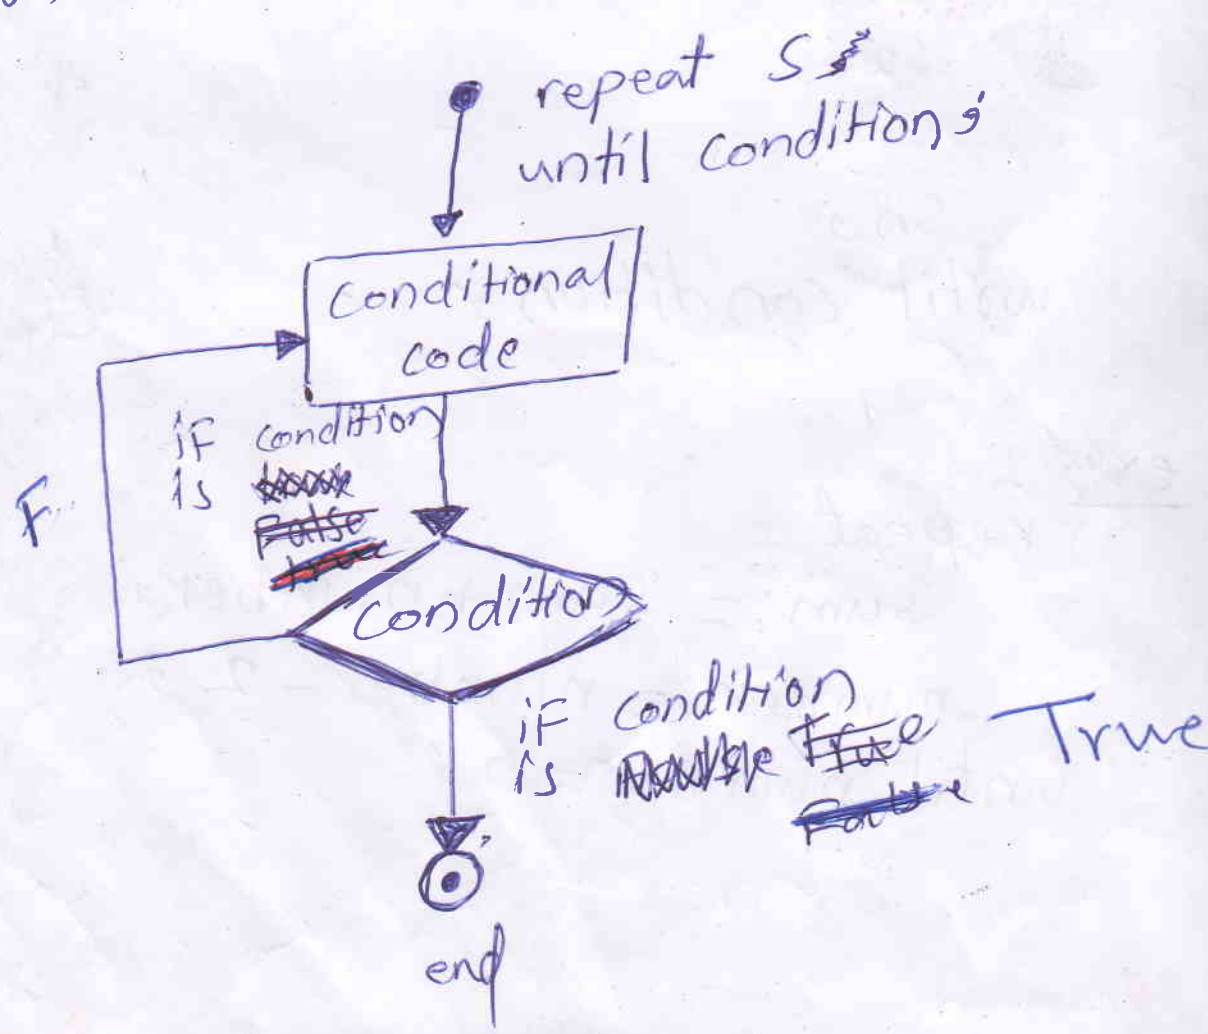 repeat S
until condition;
conditional
code
if condition
is
False
true
F
condition
if condition
is True True
False
end